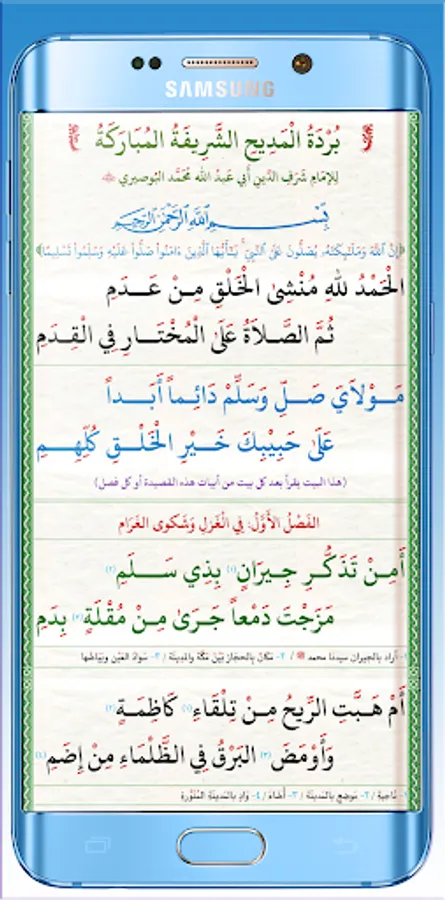 SAMSUNG
بُرْدَةُ الْمَدِيحِ الشَّرِيفَةُ الْمُبَارَكَةُ
لِلإِمَامِ شَرَفِ الدِّينِ أَبِي عَبْدِ الله مُحَمَّدِ البُوصيري
بِسْمِ اللَّهِ الرَّحْمَنِ الرَّحِيمِ
إِنَّ اللَّهَ وَمَلَائِكَتَهُ يُصَلُّونَ عَلَى النَّبِيِّ يَا أَيُّهَا الَّذِينَ ءَامَنُوا صَلُّوا عَلَيْهِ وَسَلِّمُوا تَسْلِيمًا
الْحَمْدُ للهِ مُنْشِئِ الْخَلْقِ مِنْ عَدَمِ
ثُمَّ الصَّلاَةُ عَلَى الْمُخْتَارِ فِي الْقِدَمِ
مَوْلَايَ صَلِّ وَسَلِّمْ دَائِماً أَبَداً
عَلَى حَبِيْبِكَ خَيْرِ الْخَلْقِ كُلِّهِمِ
(هذا البيت يقرأ بعد كل بيت من أبيات هذه القصيدة أو كل فصل)
الفَصْلُ الأَوَّلُ: فِي الْغَزَلِ وَشَكْوَى الغَرَامِ
أَمِنْ تَذَكُّرِ جِيرَانٍ (١) بِذِي سَلَمِ (٢)
مَزَجْتَ دَمْعاً جَرَىٰ مِنْ مُقْلَةٍ (٣) بِدَمِ
١- أراد بالجيران سيدنا محمد ﷺ / ٢- مَكَانٌ بِالحجَازِ بَيْنَ مَكَّةَ والمَدِينَة / ٣- سَوَادُ العَيْنِ وَبَيَاضُهَا
أَمْ هَبَّتِ الرِّيحُ مِنْ تِلْقَاءِ (١) كَاظِمَةٍ (٢)
وَأَوْمَضَ (٣) البَرْقُ فِي الظَّلْمَاءِ مِنْ إِضَمِ (٤)
١- نَاحِيةِ / ٢- مَوضعٍ بِالمَدينَة / ٣- أَضَاءَ / ٤- وَادٍ بِالمَدينَةِ المُنَوَّرة